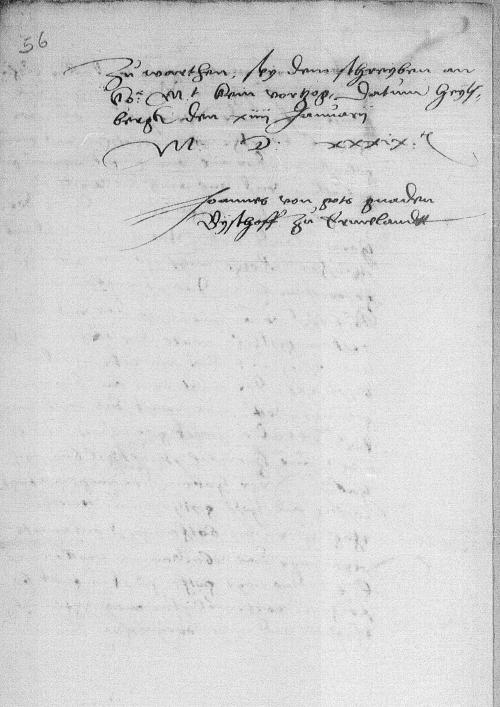 56
Zu warthen, sey dem schreyben an
ko: Mt kein vorzog. Datum Heyls-
bergk den xiiii Januarij
M D xxxix
Joannes von gots gnaden
Bysthoff zu Ermelandt